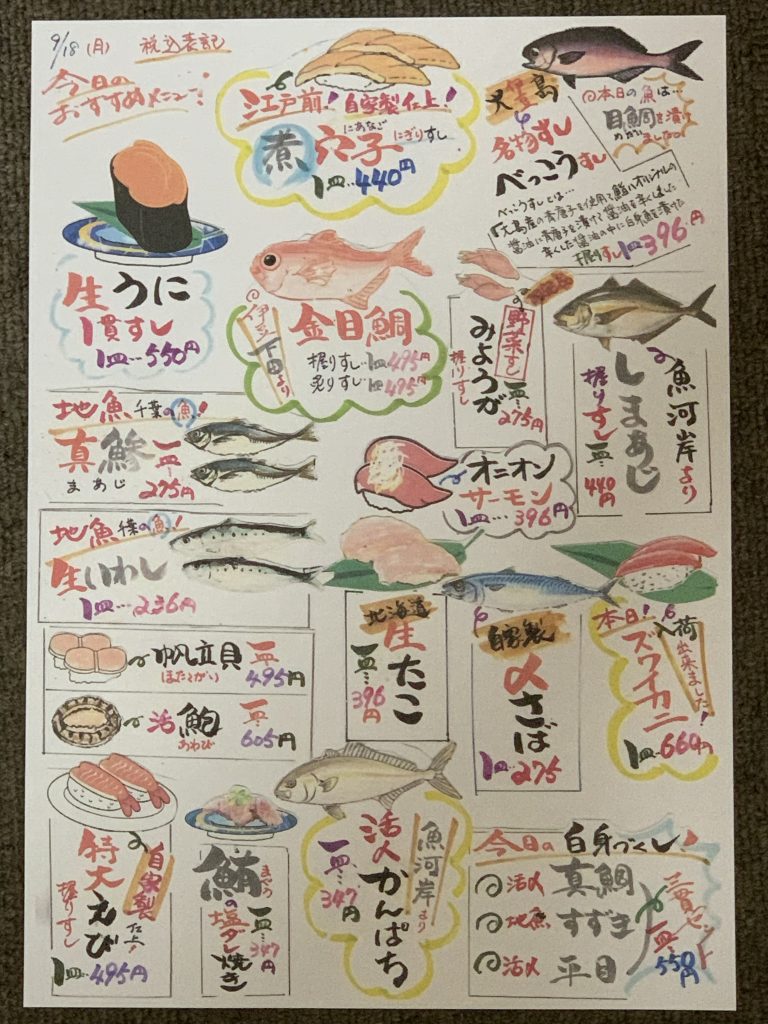 9/18 (月) 税込表記
今日の
おすすめメニュー!
江戸前! 自家製仕上!
にあなご にぎりすし
煮穴子
1皿…440円
大島
名物すし
べっこうすし
@本日の魚は…
目鯛を漬け
めだい
ましたの。
べっこうすしとは…
「大島産の青唐子を使用て鮨八オリジナルの
醤油に青唐子を漬けて醤油を辛くしました
辛くした醤油の中に白身魚を漬けた
握りすし 1皿396円
生うに
1貫すし
1皿…550円
@伊豆下田より
金目鯛
握りすし…1皿495円
炙りすし…1皿495円
の野菜すし
みょうが
握りすし
一皿…275円
魚河岸より
しまあじ
握りすし 一皿…440円
地魚 千葉の魚!
真鯵
まあじ
一皿…275円
オニオン
サーモン
1皿…396円
地魚 千葉の魚!
生いわし
1皿…236円
北海道
生たこ
一皿…396円
自家製
〆さば
1皿275
本日!
入荷出来ました!
ズワイカニ
1皿…660円
帆立貝
ほたてがい
一皿…495円
活鮑
あわび
一皿…605円
自家製仕上!
特大えび
握りすし
1皿…495円
まぐろ
鮪の塩ダレ焼き
一皿…347円
魚河岸より
活〆かんぱち
一皿…347円
今日の白身づくし!
活〆 真鯛
地魚 すずき
活〆 平目
三貫セット
一皿…550円